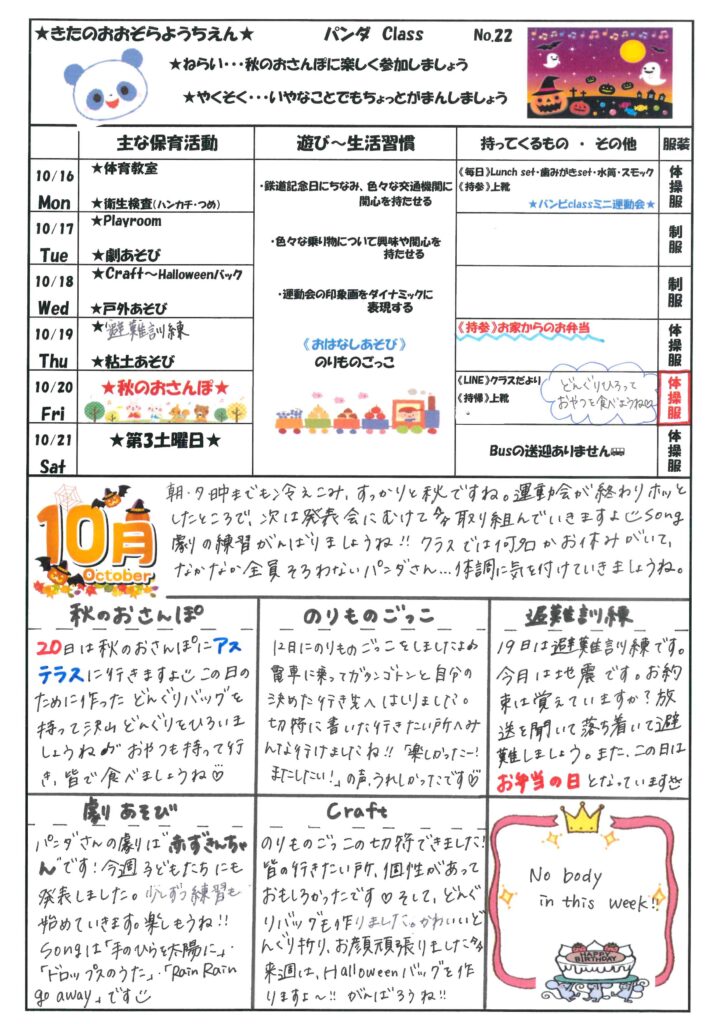 ★きたのおおぞらようちえん★ パンダ Class No.22
★ねらい・・・秋のおさんぽに楽しく参加しましょう
★やくそく・・・いやなことでもちょっとがまんしましょう
主な保育活動 遊び～生活習慣 持ってくるもの ・ その他 服装
10/16 Mon
★体育教室
★衛生検査(ハンカチ・つめ)
《毎日》Lunch set・歯みがきset・水筒・スモック
《持参》上靴
★バンビclassミニ運動会★
体操服
10/17 Tue
★Playroom
★劇あそび
制服
10/18 Wed
★Craft～Halloweenバック
★戸外あそび
制服
10/19 Thu
★避難訓練
★粘土あそび
《持参》お家からのお弁当
体操服
10/20 Fri
★秋のおさんぽ★
《LINE》クラスだより
《持帰》上靴
どんぐりひろって
おやつを食べようね
体操服
10/21 Sat
★第3土曜日★
Busの送迎ありません
体操服
・鉄道記念日にちなみ、色々な交通機関に
関心を持たせる
・色々な乗り物について興味や関心を
持たせる
・運動会の印象画をダイナミックに
表現する
《おはなしあそび》
のりものごっこ
10月
October
朝・夕中までも冷えこみ、すっかりと秋ですね。運動会が終わりホッと
したところで、次は発表会にむけて取り組んでいきますよ Song
劇の練習がんばりましょうね!! クラスでは何名かお休みがいて、
なかなか全員そろわないパンダさん…体調に気を付けていきましょうね。
秋のおさんぽ
20日は秋のおさんぽにアス
テラスに行きますよ この日の
ために作った どんぐりバッグを
持って沢山 どんぐりをひろいま
しょうね おやつも持って行
き、皆で食べましょうね♡
のりものごっこ
12日にのりものごっこをしましたよ
電車に乗ってガタンゴトンと自分の
決めた行き先へはしりました。
切符に書いた行きたい所へみ
んな行けましたね!!「楽しかったー!
またしたい!」の声、うれしかったです♡
避難訓練
19日は避難訓練です。
今月は地震です。お約
束は覚えていますか?放
送を聞いて落ち着いて避
難しましょう。また、この日は
お弁当の日となっています
劇あそび
パンダさんの劇は"赤ずきんちゃ
ん"です!今週子どもたちにも
発表しました。少しずつ練習も
始めていきます。楽しもうね!!
Songは「手のひらを太陽に」・
「ドロップスのうた」・「Rain Rain
go away」です
Craft
のりものごっこの切符できました!
皆の行きたい所、個性があって
おもしろかったです♡そして、どんぐ
りバッグも作りました。かわいいど
んぐり折り、お顔頑張りました
来週は、Halloweenバッグを作
りますよ～!! がんばろうね!!
No body
in this week!!
HAPPY
BIRTHDAY